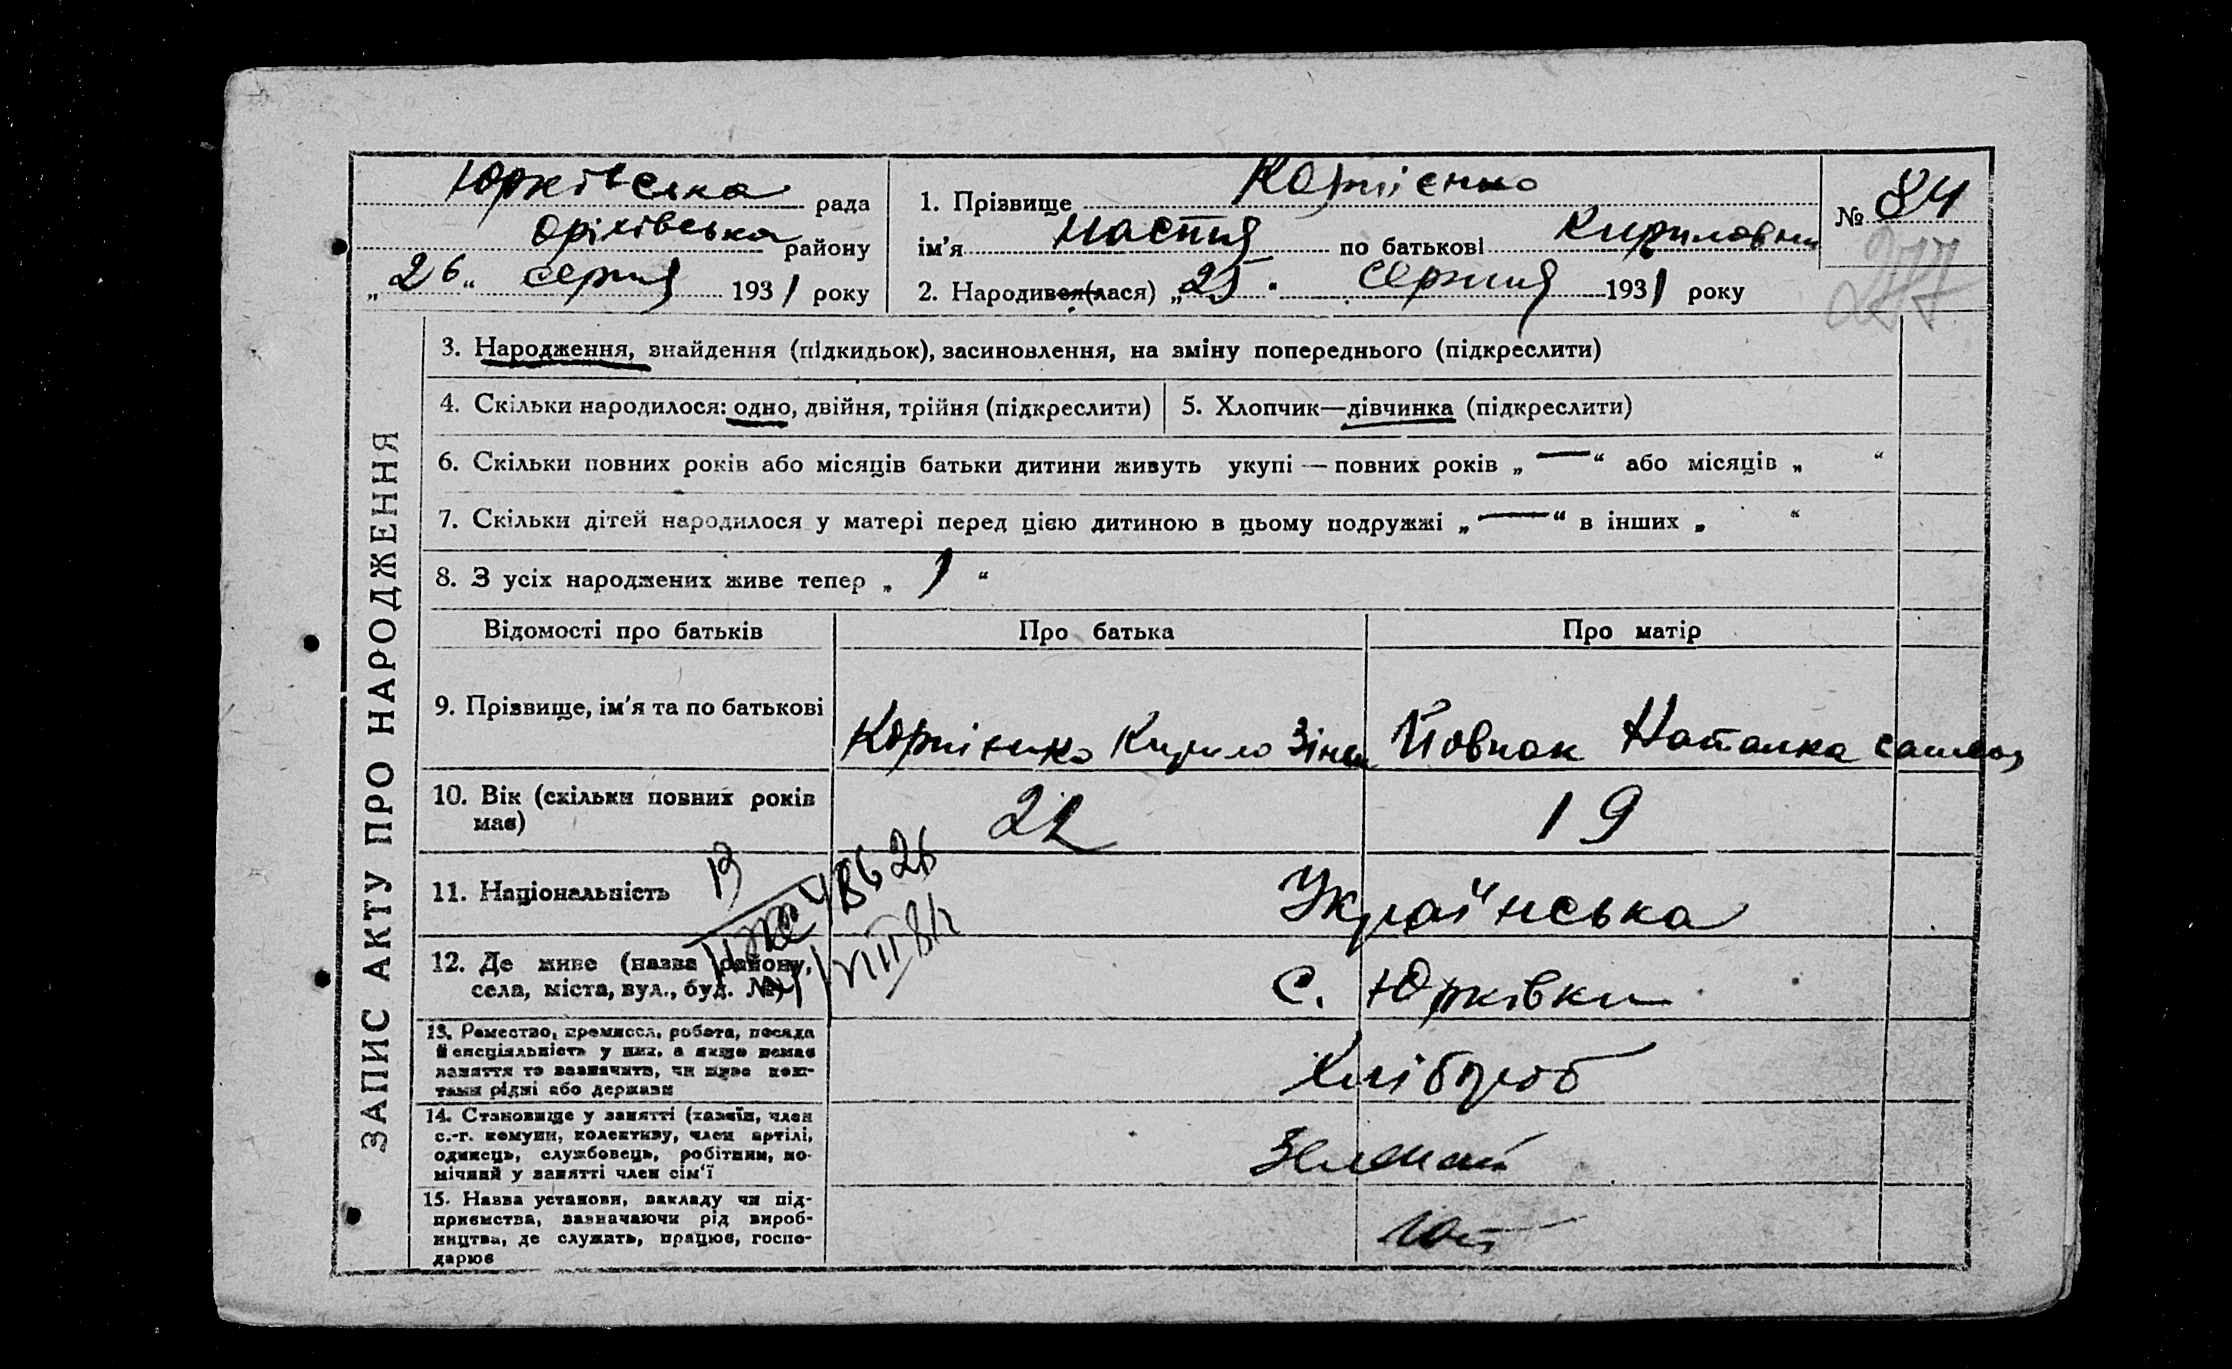 Юрківська рада
Оріхівська району
„26“ серпня 1931 року
1. Прізвище Корнієнко
ім’я Настя по батькові Кириловна
2. Народився(лася) „25 серпня 1931 року
№ 84
277
ЗАПИС АКТУ ПРО НАРОДЖЕННЯ
3. Народження, знайдення (підкидьок), засиновлення, на зміну попереднього (підкреслити)
4. Скільки народилося: одно, двійня, трійня (підкреслити)
5. Хлопчик—дівчинка (підкреслити)
6. Скільки повних років або місяців батьки дитини живуть укупі — повних років „ — “ або місяців „ “
7. Скільки дітей народилося у матері перед цією дитиною в цьому подружжі „ — “ в інших „ “
8. З усіх народжених живе тепер „ 1 “
Відомості про батьків
Про батька
Про матір
9. Прізвище, ім’я та по батькові
Корнієнко Кирило Зінов
Йовпак Наталка
10. Вік (скільки повних років
має)
22
19
11. Національність
Українська
12. Де живе (назва району,
села, міста, вул., буд. №)
с. Юрківки
13. Ремество, промисел, робота, посада
й спеціяльність у них, а якщо немає
заняття то зазначити, чи живе кош-
тами рідні або держави
Хлібороб
14. Становище у занятті (хазяїн, член
с.-г. комуни, колективу, член артілі,
одинець, службовець, робітник, по-
мічний у занятті член сім’ї
15. Назва установи, закладу чи під-
приємства, зазначаючи рід вироб-
ництва, де служить, працює, госпо-
дарює